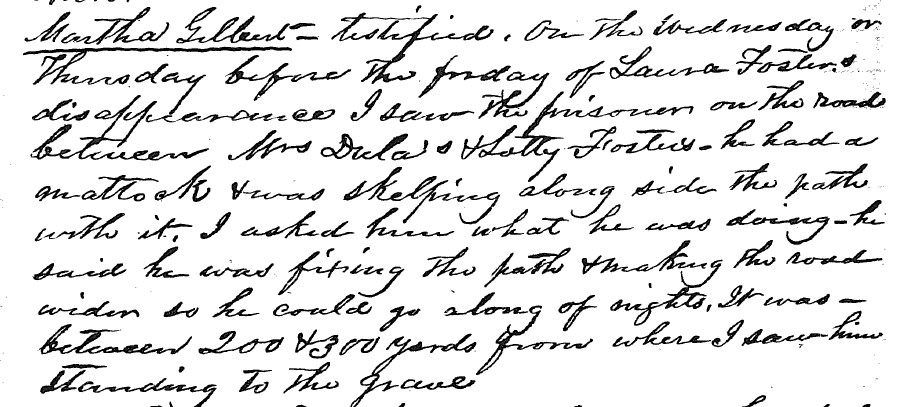 Martha Gilbert – testified. On the Wednesday or
Thursday before the friday of Laura Foster's
disappearance I saw the prisoner on the road
between Mrs Dula's & Lotty Foster's – he had a
mattock & was skelping along side the path
with it. I asked him what he was doing – he
said he was fixing the path & making the road
wider so he could go along of nights. It was –
between 200 & 300 yards from where I saw him
standing to the grave